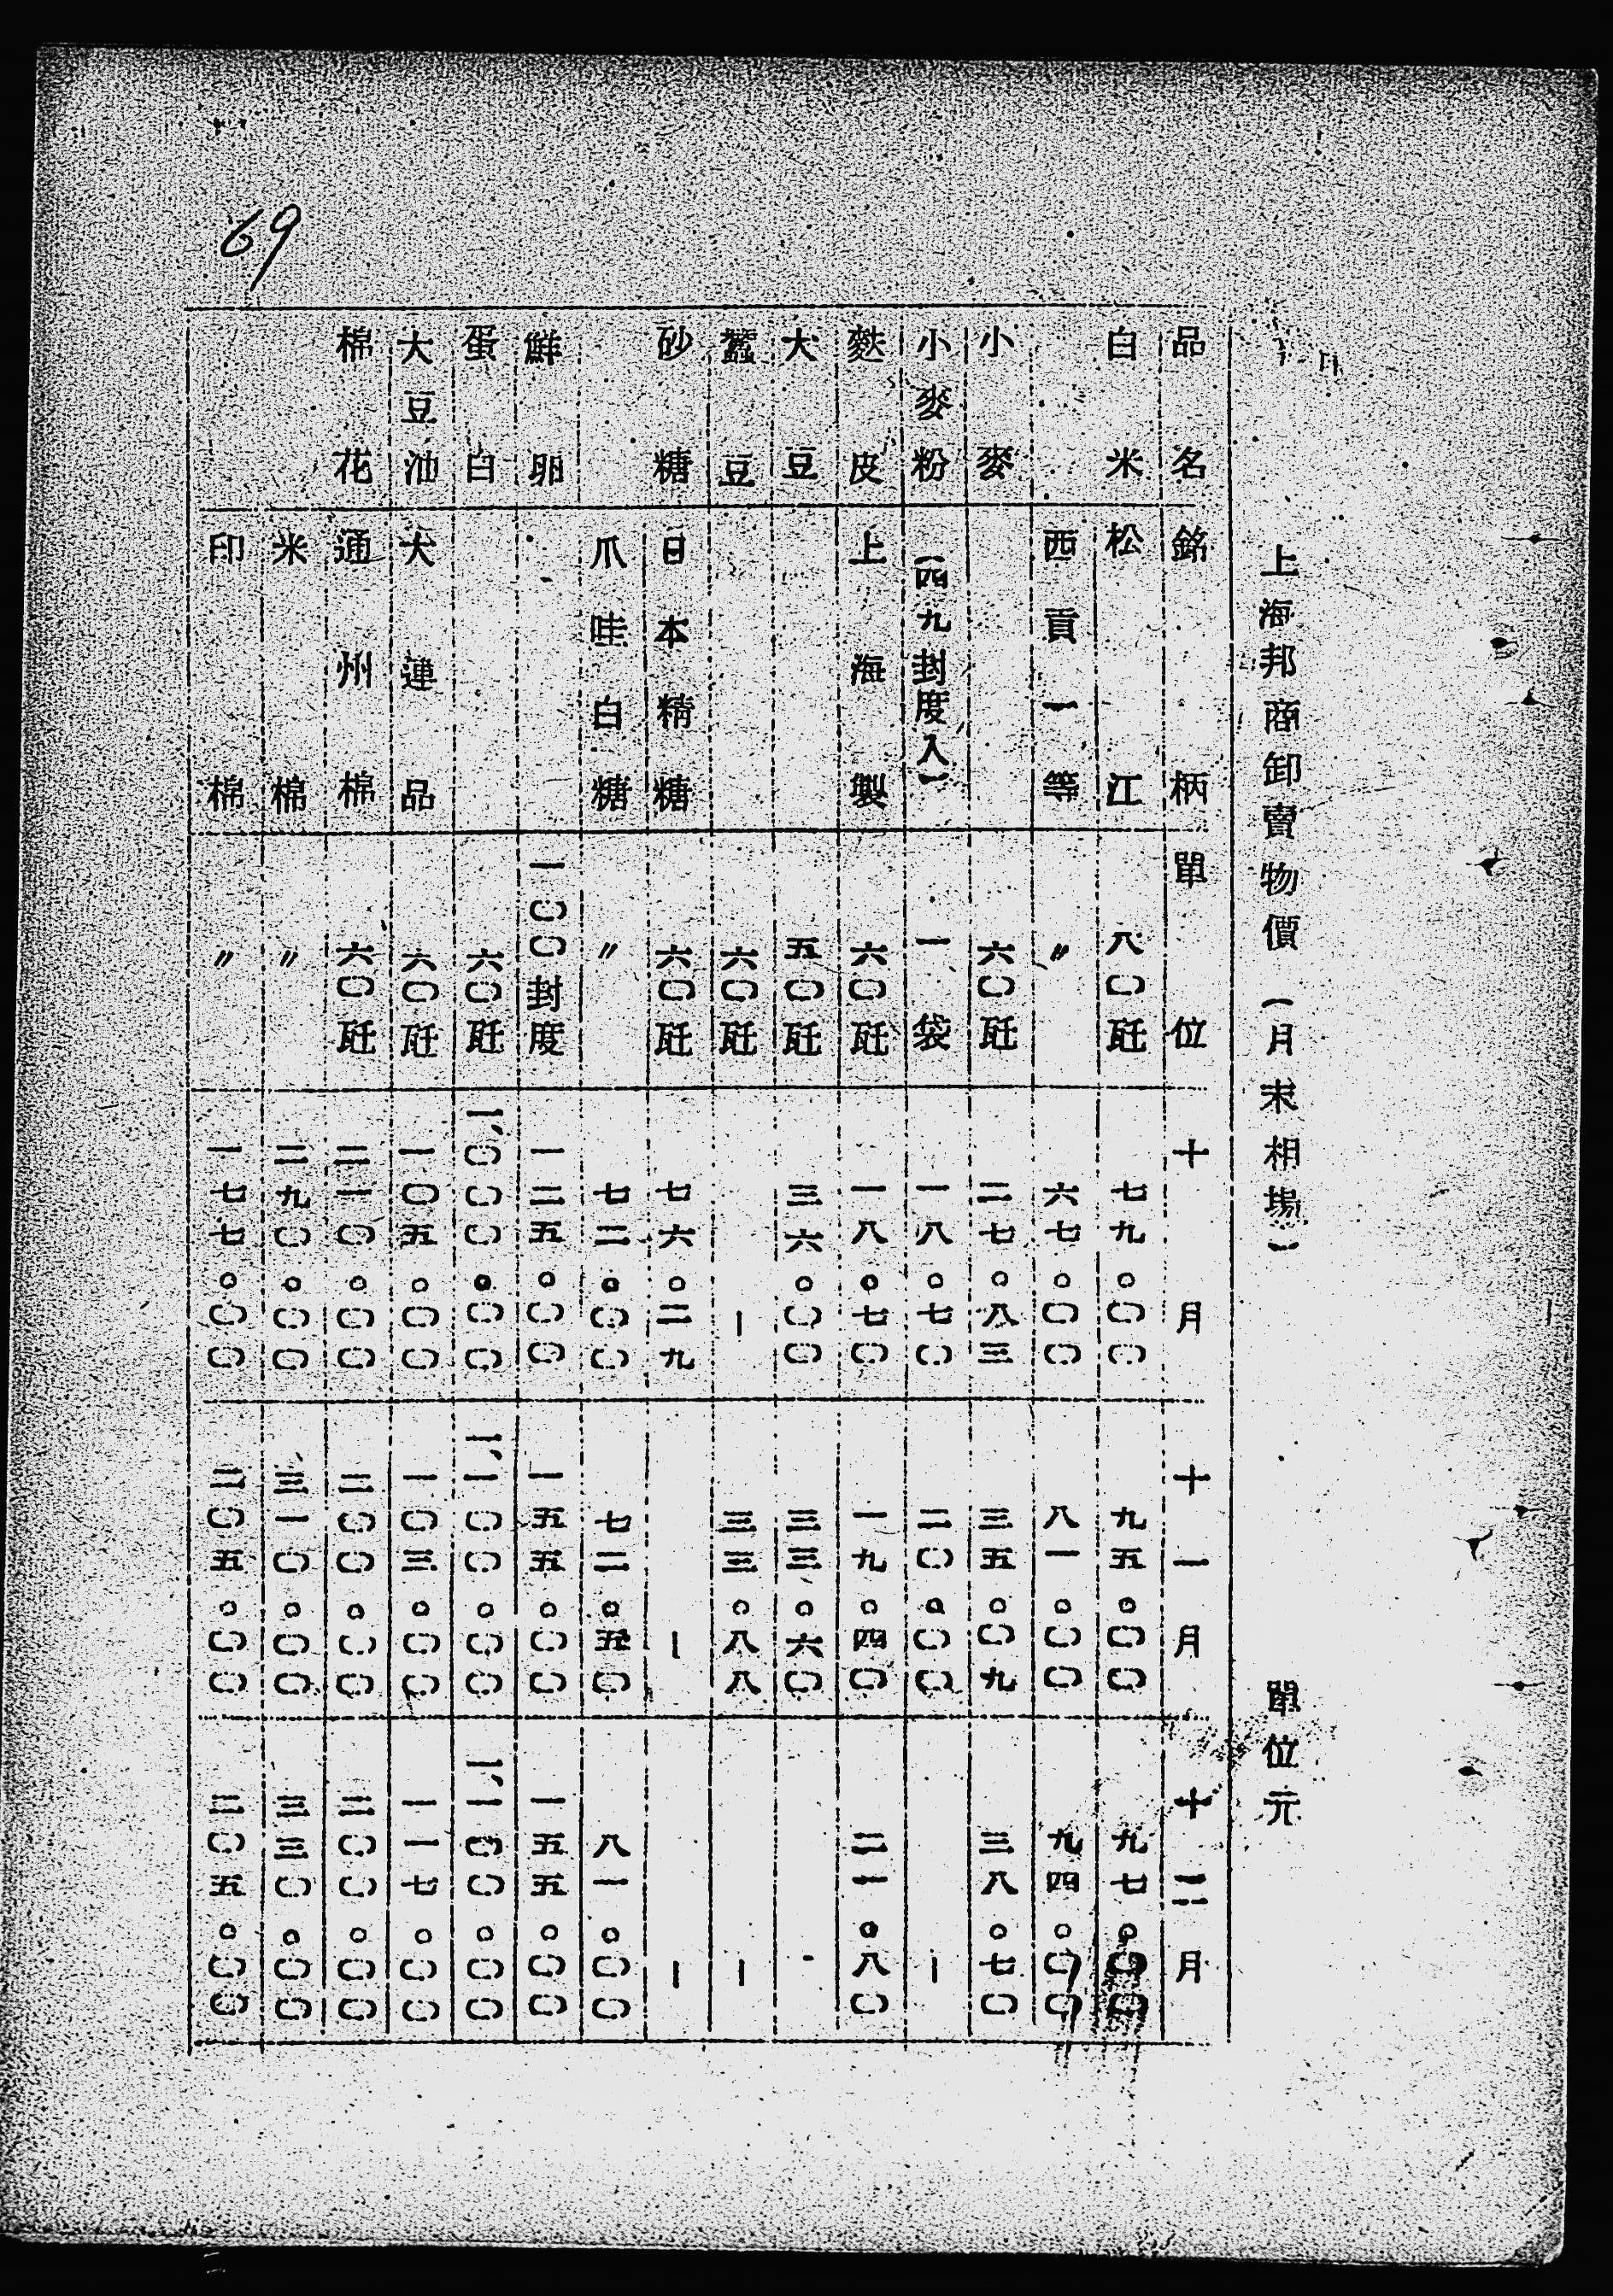 69
上海邦商卸賣物價（月末相場） 單位元
品名 銘柄 單位 十月 十一月 十二月
白米 松江 八〇瓩 七九。〇〇 九五。〇〇 九七。〇〇
西貢一等 〃 六七。〇〇 八一。〇〇 九四。〇〇
小麥 六〇瓩 二七。八三 三五。〇九 三八。七〇
小麥粉 （四九封度入） 一袋 一八。七〇 二〇。〇〇 ー
麩皮 上海製 六〇瓩 一八。七〇 一九。四〇 二一。八〇
大豆 五〇瓩 三六。〇〇 三三。六〇 -
蠶豆 六〇瓩 ー 三三。八八 ー
砂糖 日本精糖 六〇瓩 七六。二九 ー ー
爪哇白糖 〃 七二。〇〇 七二。五〇 八一。〇〇
鮮卵 一〇〇封度 一二五。〇〇 一五五。〇〇 一五五。〇〇
蛋白 六〇瓩 一、〇〇〇。〇〇 一、一〇〇。〇〇 一、一〇〇。〇〇
大豆油 大連品 六〇瓩 一〇五。〇〇 一〇三。〇〇 一一七。〇〇
棉花 通州棉 六〇瓩 二一〇。〇〇 二〇〇。〇〇 二〇〇。〇〇
米棉 〃 二九〇。〇〇 三一〇。〇〇 三三〇。〇〇
印棉 〃 一七七。〇〇 二〇五。〇〇 二〇五。〇〇